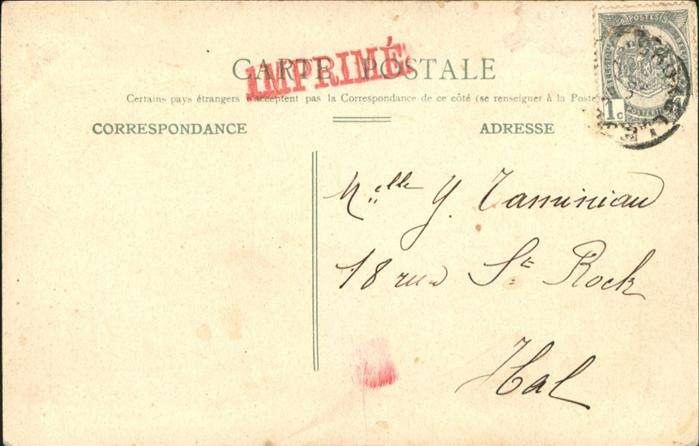 CARTE POSTALE
IMPRIMÉ
Certains pays étrangers n'acceptent pas la Correspondance de ce côté (se renseigner à la Poste)
CORRESPONDANCE
ADRESSE
POSTES
1c
Melle Y. Taminiau
18 rue St Rock
Hal